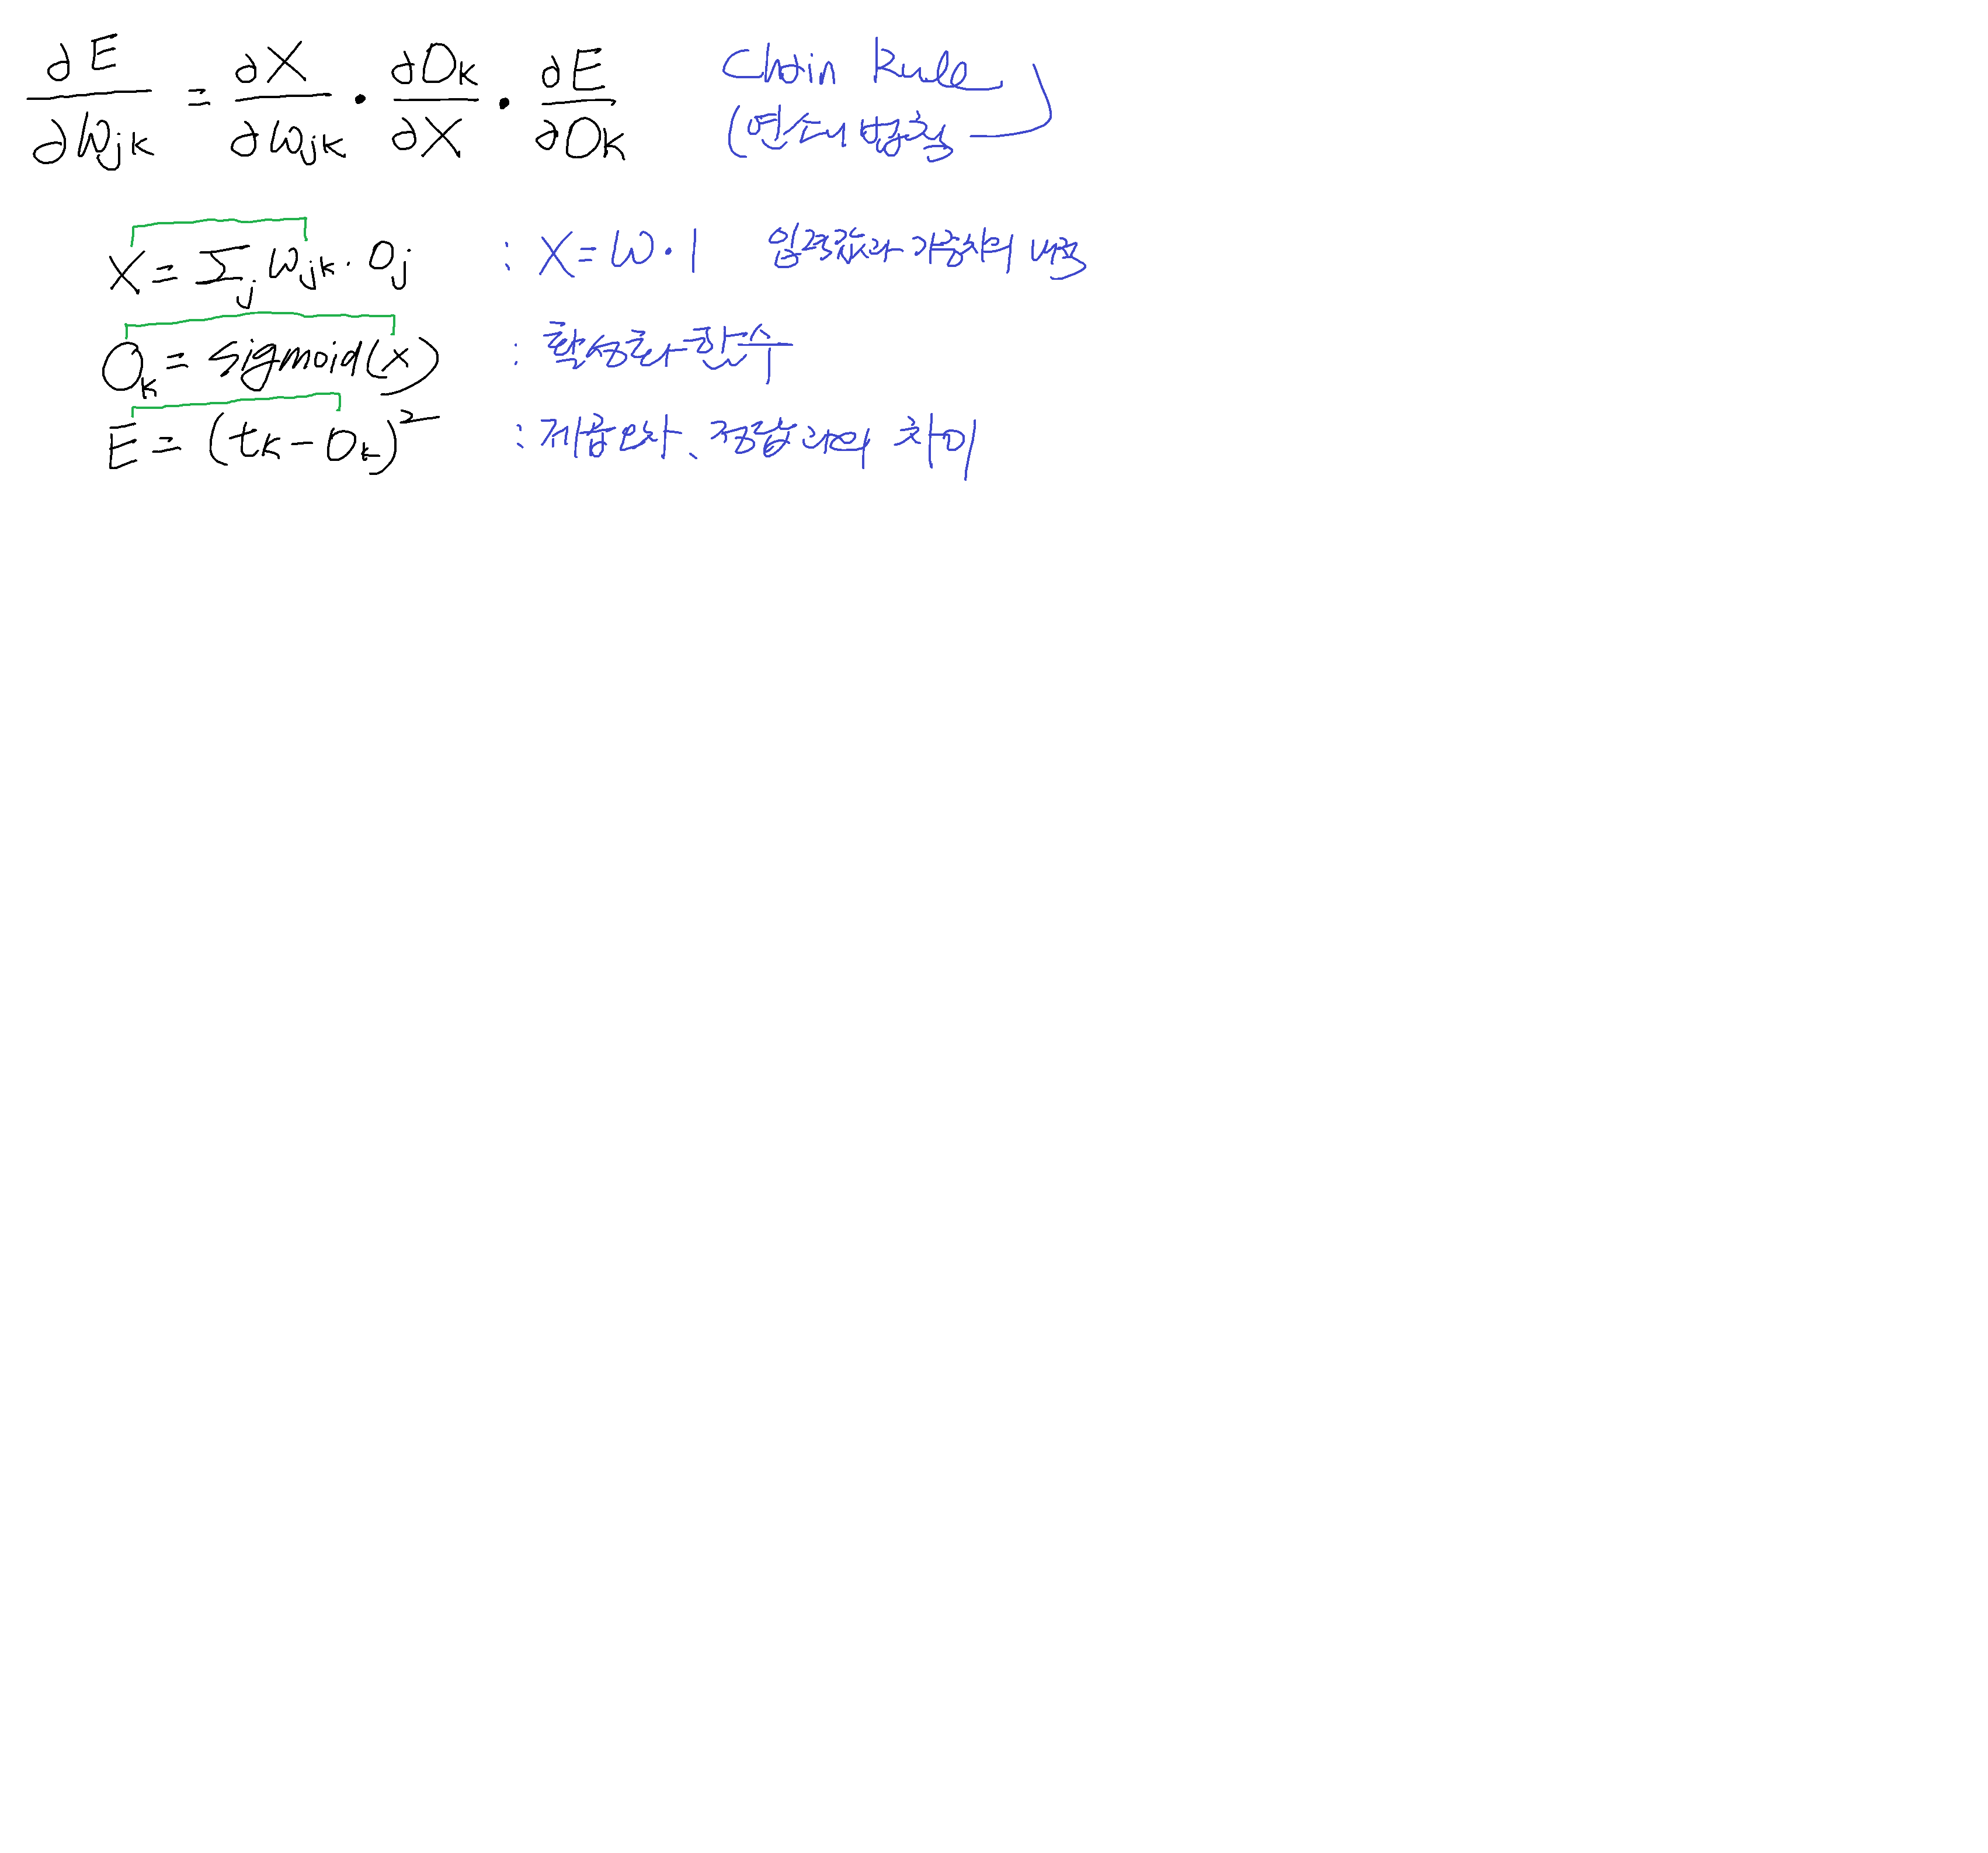 ∂E/∂Wjk = ∂X/∂Wjk · ∂Ok/∂X · ∂E/∂Ok Chain Rule
(연쇄 법칙
X = Σj Wjk · Oj : X = W · I 입력값과 가중치의 내적
Ok = sigmoid(x) : 활성화 함수
E = (tk - Ok)² : 제곱오차, 정답과의 차이